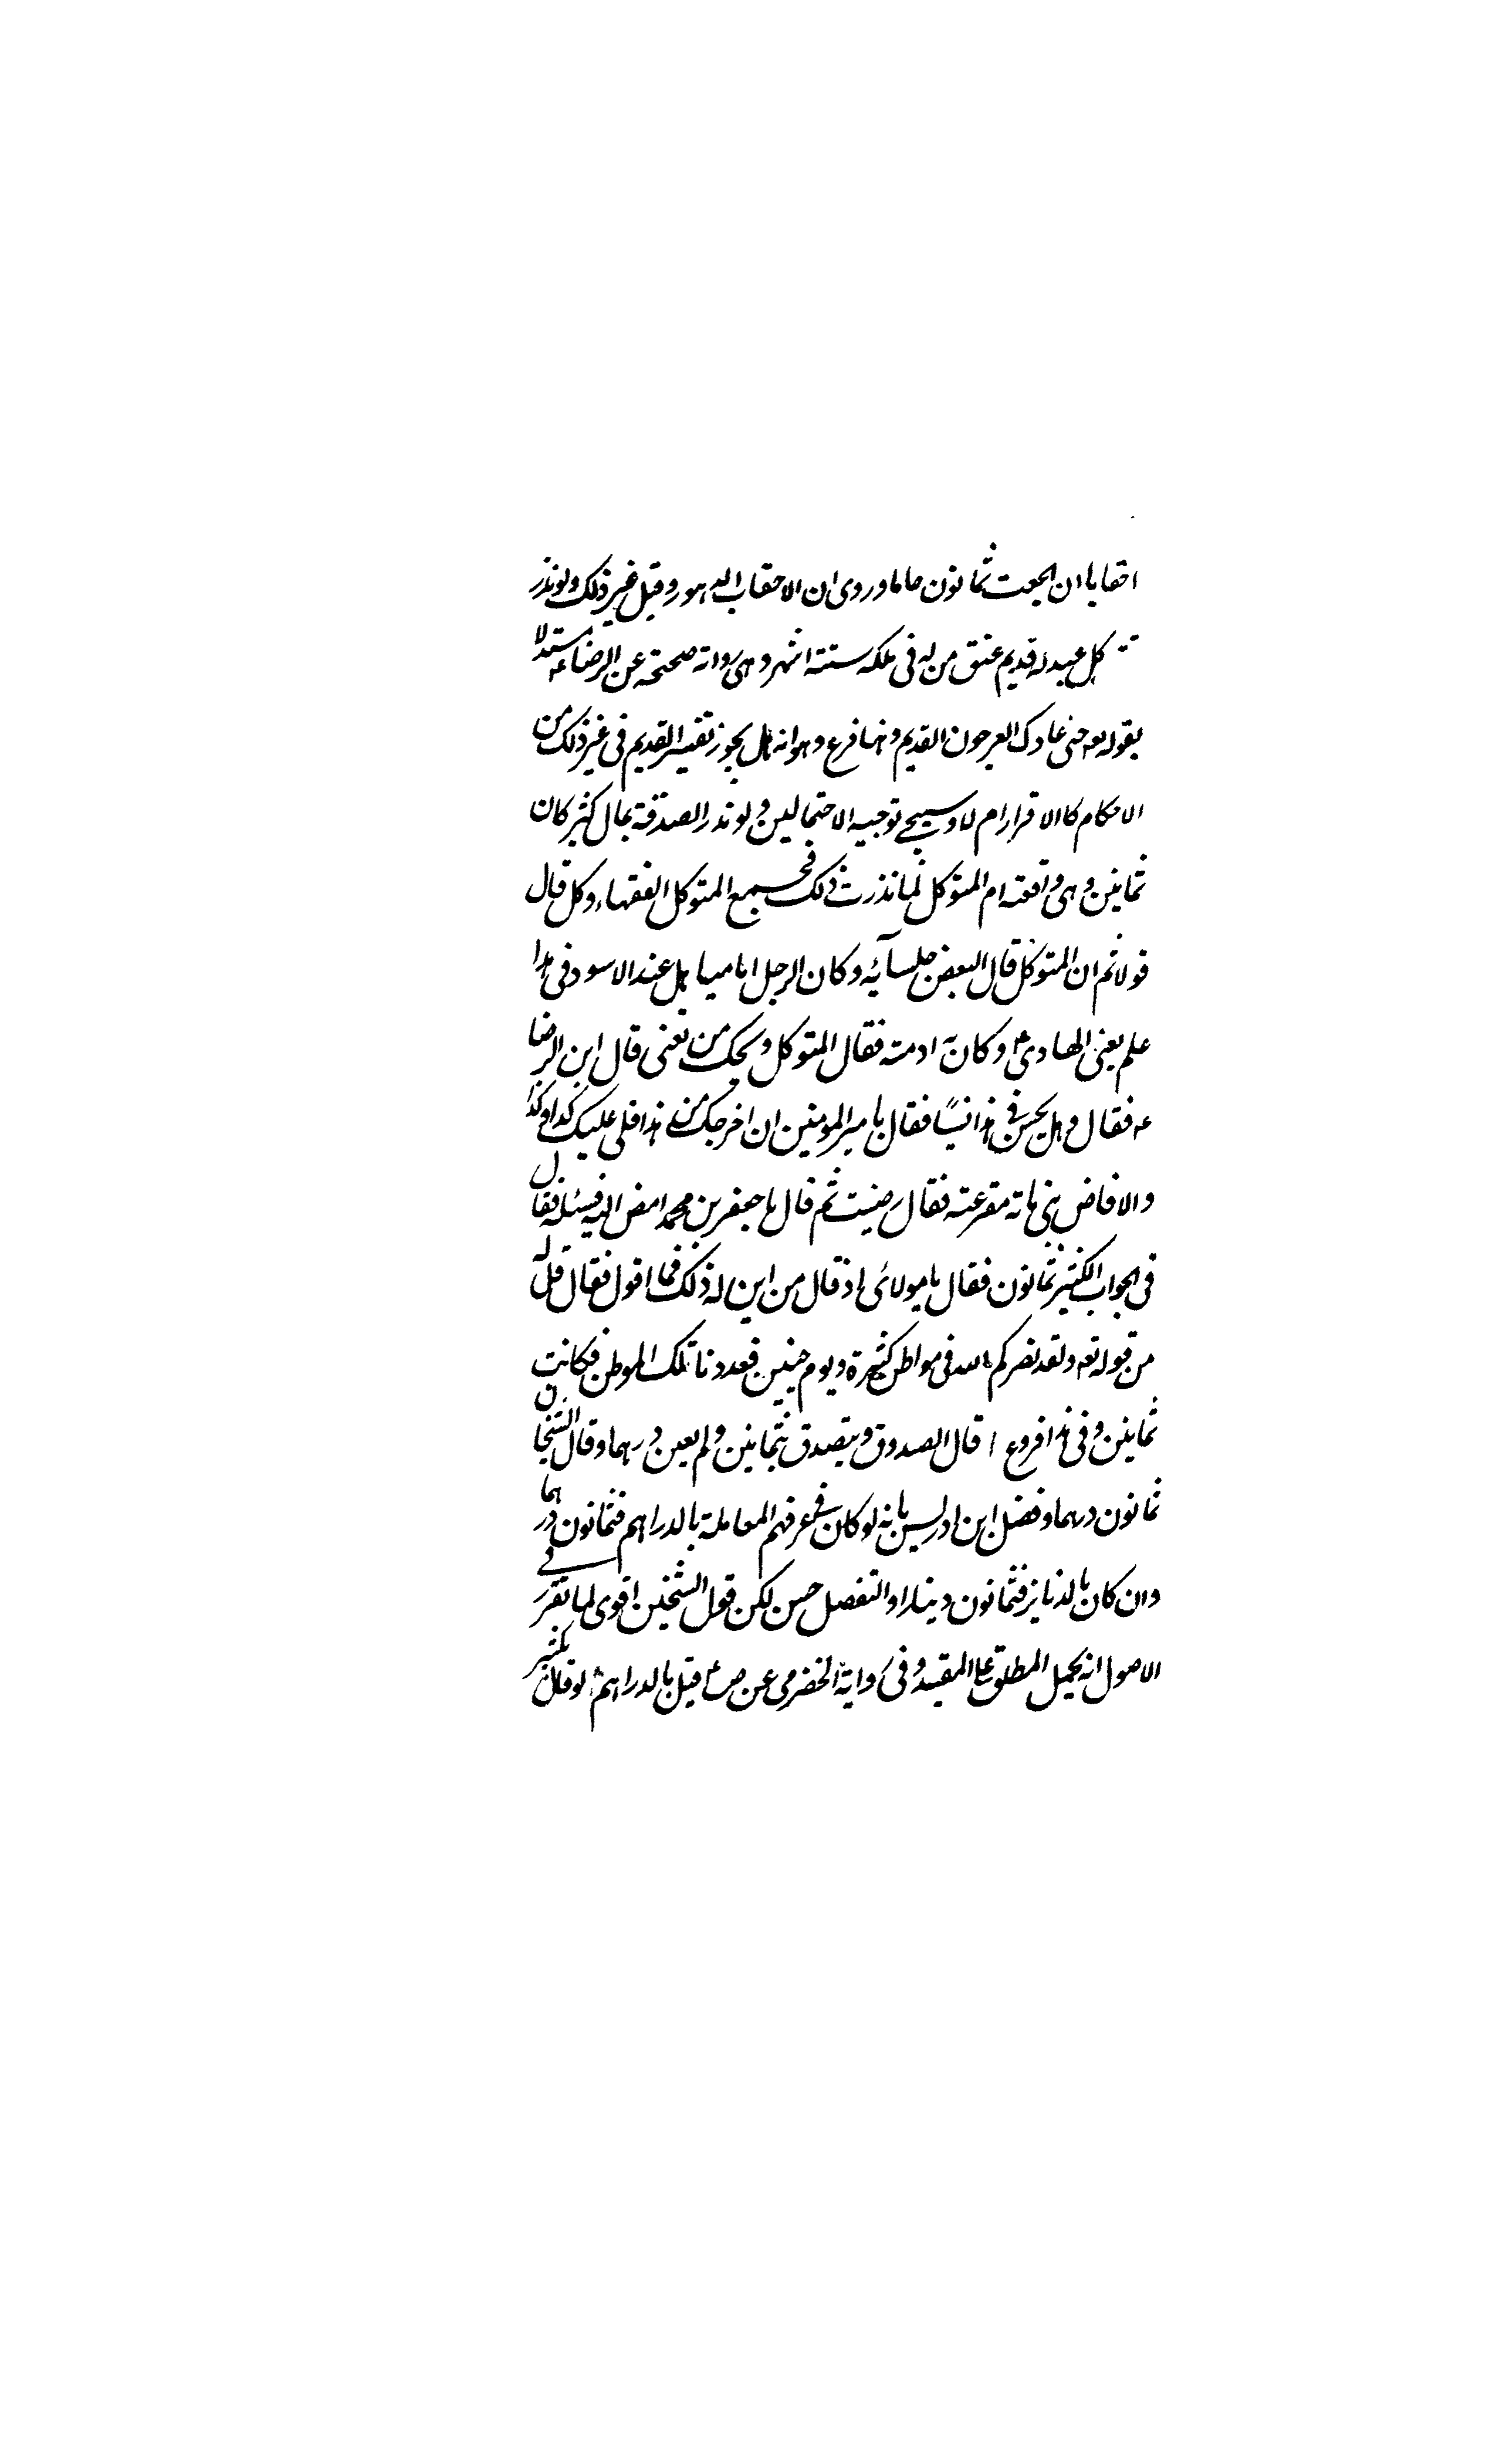 احقابا ان الحقب ثمانون عاما وروى ان الاحقاب الدهور وقيل غير ذلك ولو نذر
كل عبد له قديم عتق من له فى ملكه ستة اشهر وهى رواية صحيحة عن الرضا ع مستدلا
بقوله تعه حتى عاد كالعرجون القديم وهنا فرع وهو انه هل يجوز تفسير القديم فى غير ذلك من
الاحكام كالاقرار ام لا وسيجىء توجيه الاحتمالين ولو نذر الصدقة بمال كثير كان
ثمانين وهى واقعة ام المتوكل لما نذرت ذلك فجمع المتوكل الفقهاء وكل قال
قولا ثم ان المتوكل قال لبعض جلسآئه وكان الرجل اماميا هل عند الاسود فى هذا
علم يعنى الهادى ع وكان به ادمة فقال المتوكل ويحك من تعنى قال ابن الرضا
ع فقال وهل يحسن فى هذا شيئا فقال يا امير المومنين ان اخرجك من هذا فلى عليك كذا وكذا
والا فاضربنى ماته مقرعته فقال رضيت ثم قال يا جعفر بن محمد امض اليه فسئله فقال
فى الجواب الكثير ثمانون فقال يا مولائى اذ قال من اين له ذلك فما اقول فقال قل له
من قوله تعه ولقد نصركم الله فى مواطن كثيرة ويوم حنين فعددنا تلك الموطن فكانت
ثمانين وفى هذا فروع ا قال الصدوق ويتصدق بثمانين ولم يعين درهما وقال الشيخان
ثمانون درهما وفصل ابن ادريس بانه لو كان فى عرفهم المعاملة بالدراهم فثمانون درهما
وان كان بالدنانير فثمانون دينارا والتفصل حسن لكن قول الشيخين اقوى لما تقرر فى
الاصول انه يحمل المطلق على المقيد وفى رواية الحضرمى عن ص ع قيل بالدراهم لو قال بكثير